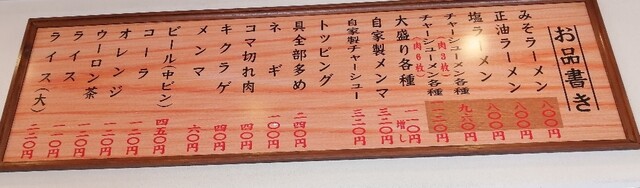 お品書き
みそラーメン 八〇〇円
正油ラーメン 八〇〇円
塩ラーメン 八〇〇円
チャーシューメン各種(肉3枚) 九六〇円
チャーシューメン各種(肉6枚) 一一二〇円
大盛り各種 一一〇円増し
自家製メンマ 三二〇円
自家製チャーシュー
トッピング
具全部多め 二四〇円
ネギ 一〇〇円
コマ切れ肉 四〇円
キクラゲ 四〇円
メンマ 六〇円
ビール(中ビン) 四五〇円
コーラ 一一〇円
オレンジ 一一〇円
ウーロン茶 一一〇円
ライス 一一〇円
ライス(大)